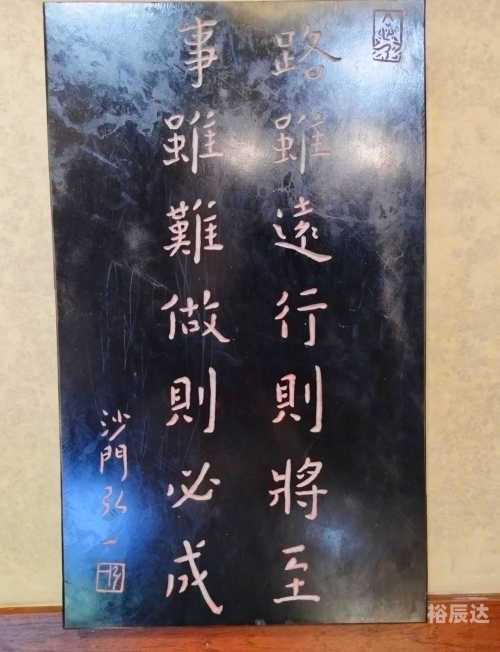 路雖遠行則將至
事雖難做則必成
沙門弘一
裕辰达